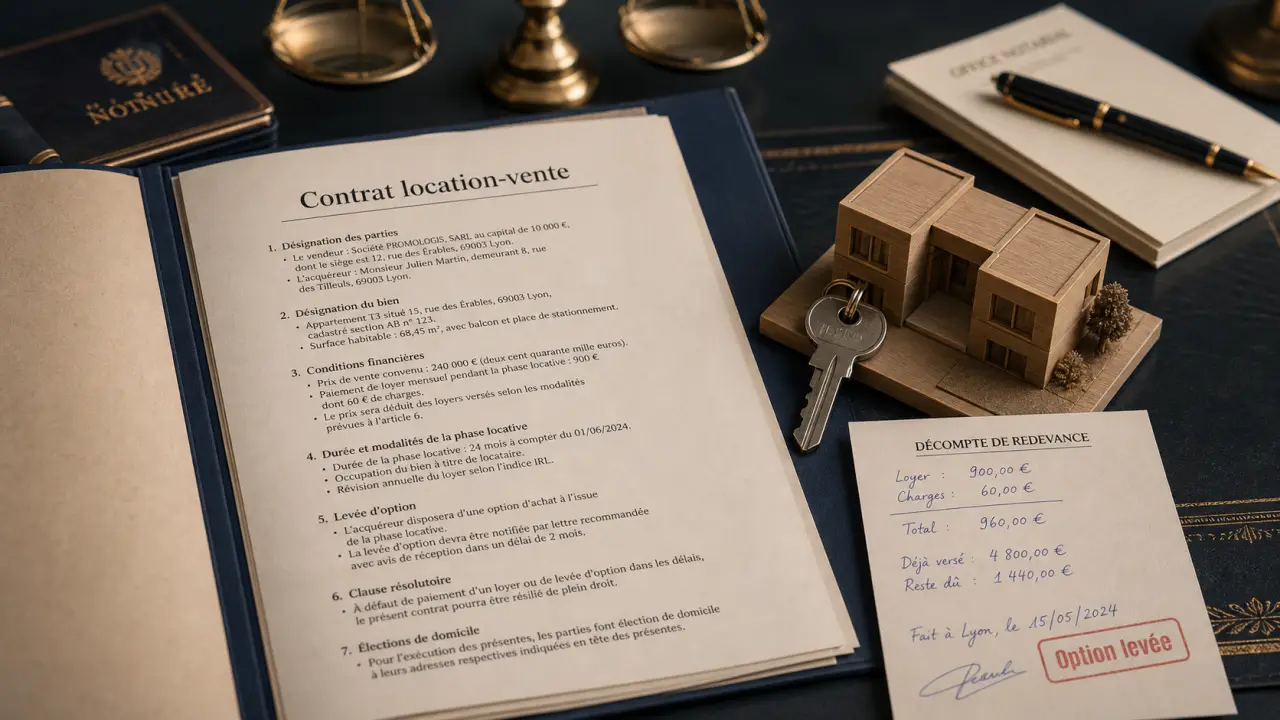 NOTNURÉ
OFFICE NOTARIAL
Contrat location-vente
1. Désignation des parties
• Le vendeur : Société PROMOLOGIS, SARL au capital de 10 000 €,
dont le siège est 12, rue des Érables, 69003 Lyon.
• L'acquéreur : Monsieur Julien Martin, demeurant 8, rue
des Tilleuls, 69003 Lyon.
2. Désignation du bien
• Appartement T3 situé 15, rue des Érables, 69003 Lyon,
cadastré section AB n° 123.
• Surface habitable : 68,45 m², avec balcon et place de stationnement.
3. Conditions financières
• Prix de vente convenu : 240 000 € (deux cent quarante mille euros).
• Paiement de loyer mensuel pendant la phase locative : 900 €
dont 60 € de charges.
• Le prix sera déduit des loyers versés selon les modalités
prévues à l'article 6.
4. Durée et modalités de la phase locative
• Durée de la phase locative : 24 mois à compter du 01/06/2024.
• Occupation du bien à titre de locataire.
• Révision annuelle du loyer selon l'indice IRL.
5. Levée d'option
• L'acquéreur disposera d'une option d'achat à l'issue
de la phase locative.
• La levée d'option devra être notifiée par lettre recommandée
avec avis de réception dans un délai de 2 mois.
6. Clause résolutoire
• À défaut de paiement d'un loyer ou de levée d'option dans les délais,
le présent contrat pourra être résilié de plein droit.
7. Élections de domicile
• Pour l'exécution des présentes, les parties font élection de domicile
à leurs adresses respectives indiquées en tête des présentes.
DÉCOMPTE DE REDEVANCE
Loyer : 900,00 €
Charges : 60,00 €
Total : 960,00 €
Déjà versé : 4 800,00 €
Reste dû : 1 440,00 €
Fait à Lyon, le 15/05/2024
Option levée